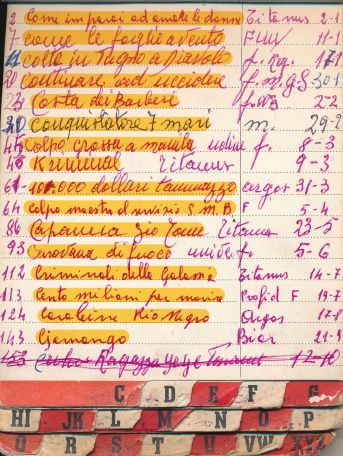 2 Come imparai ad amare le donne Titanus 2-1
7 come le foglie al vento FIUV 11-1
colta in fragno a Diavolo f. Reg. 17-1
20 continuare ad uccidere f. m. g S 30 1
Costa dei Barbari f. 2-2
30 conquistatore 7 mari m. 29-2
45 colpo grosso a manila f. 8-3
46 Kriminal Titanus 9-3
61 100.000 dollari argos 31-3
64 colpo maestro al servizio S.M.B F 5-4
86 Capanna Zio Tom Titanus 23-5
93 Carovana di fuoco f. 5-6
112 Criminali della Galassia Titanus 14-7
113 Cento milioni per morire F 19-7
124 Carabina Rio Negro Argos 17-8
143 Cjamango Bear 21-9
153 Ragazza yeye Titanus 12-10
C D E F G
HI JK L M N O P
Q R S T U VW XYZ